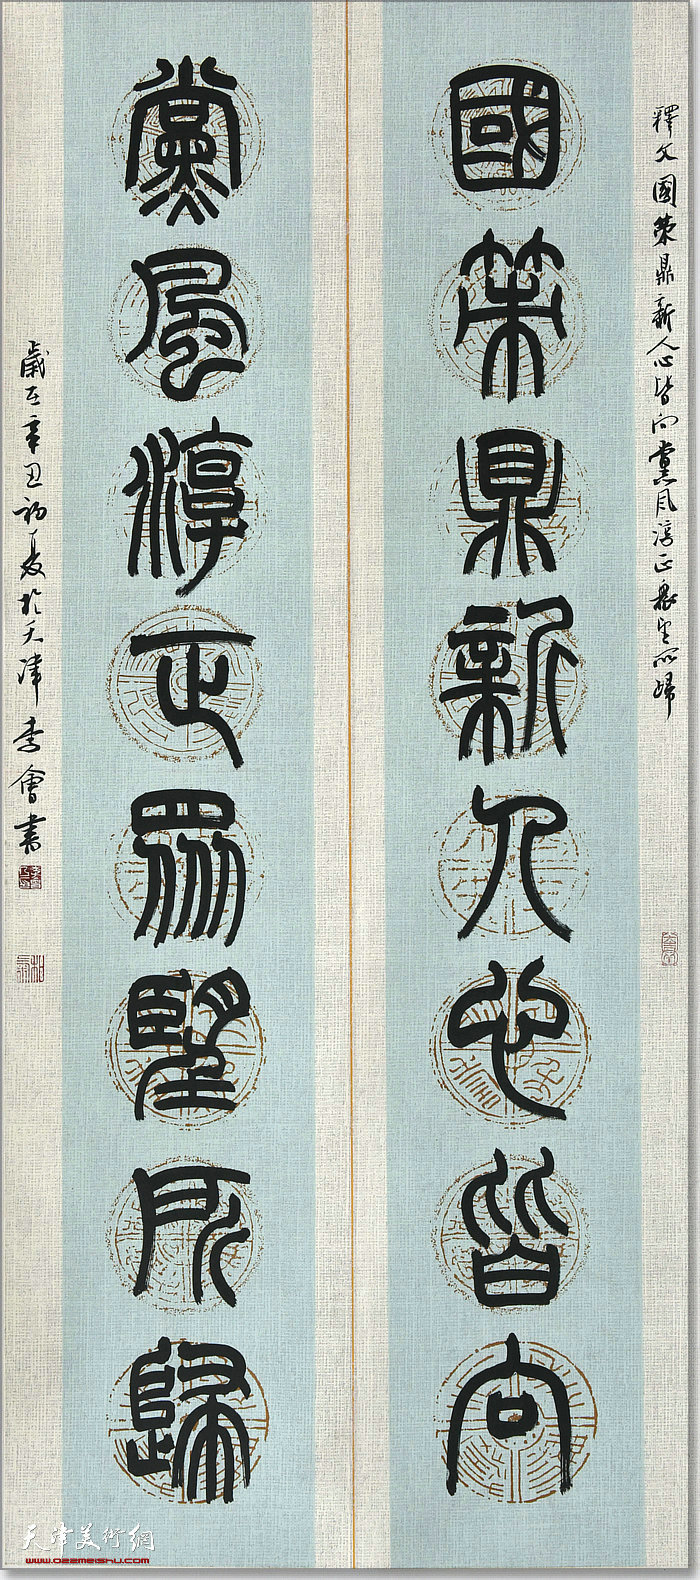 釋文國策鼎新人心皆向黨風淳正眾望所歸
國策鼎新人心皆向
黨風淳正眾望所歸
歲在辛丑初夏於天津李會書
天津美術網
www.022meishu.com